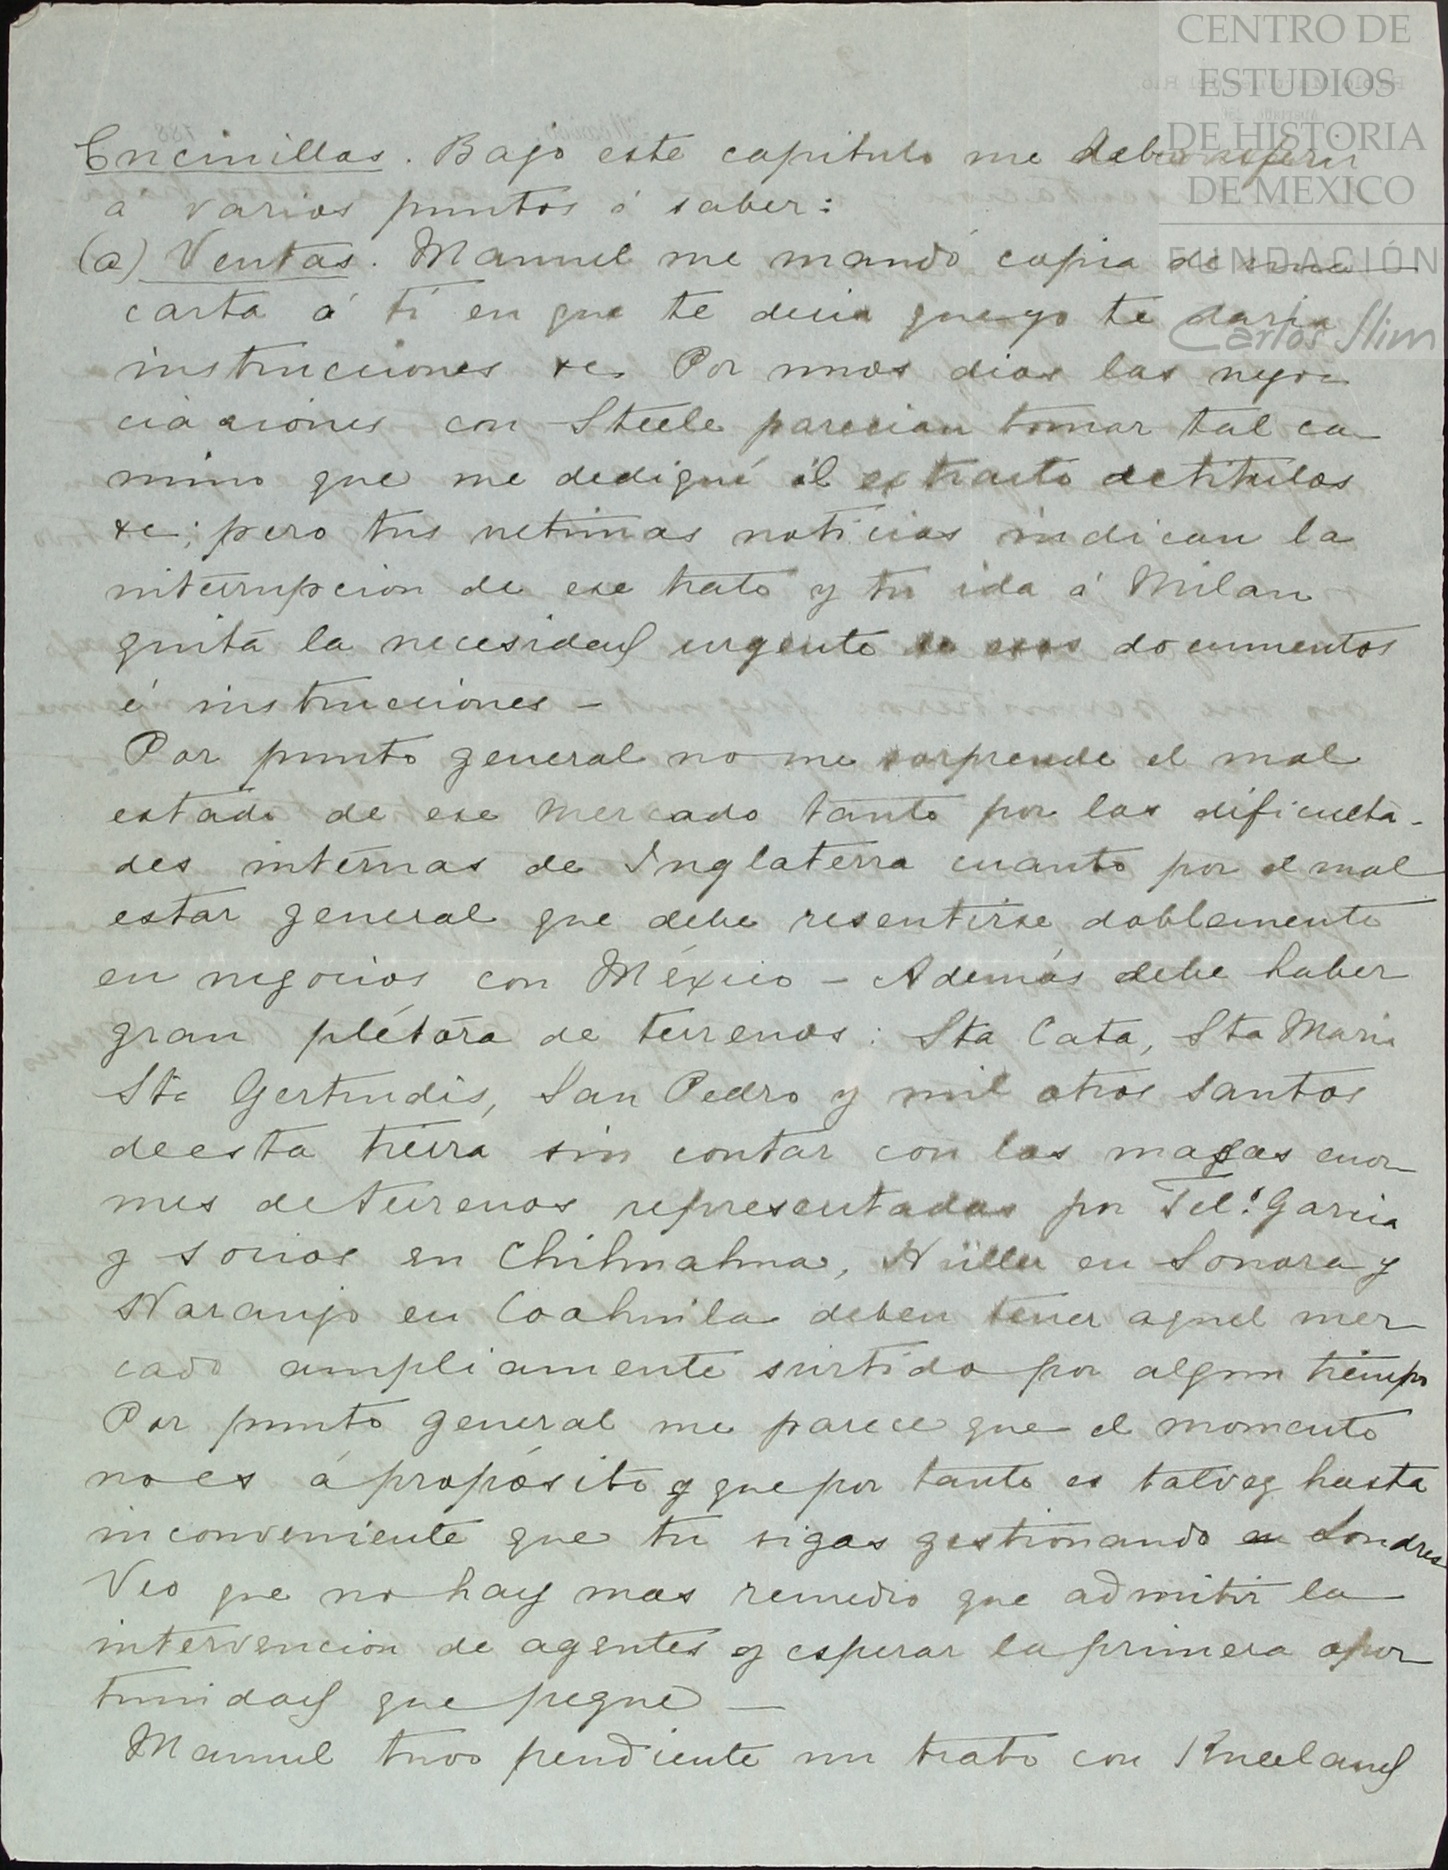 CENTRO DE
ESTUDIOS
DE HISTORIA
DE MEXICO
FUNDACIÓN
Carlos Slim
Encinillas. Bajo este capitulo me debo referir
á varios puntos á saber:
(a) Ventas. Manuel me mandó copia de una
carta á tí en que te decia que yo te daria
instrucciones &c. Por unos dias las nego
ciaciones con Steele parecian tomar tal ca
mino que me dediqué al extracto de titulos
&c; pero tus ultimas noticias indican la
interrupcion de ese trato y tu ida á Milan
quita la necesidad urgente de esos documentos
é instrucciones —
Por punto general no me sorprende el mal
estado de ese mercado tanto por las dificulta-
des internas de Inglaterra cuanto por el mal
estar general que debe resentirse doblemente
en negocios con México — Además debe haber
gran plétora de terrenos: Sta Cata, Sta Maria
Sta Gertrudis, San Pedro y mil otros santos
de esta tierra sin contar con las masas enor
mes de terrenos representadas por Garcia
y socios en Chihuahua, Hüller en Sonora y
Naranjo en Coahuila deben tener aquel mer
cado ampliamente surtido por algun tiempo
Por punto general me parece que el momento
no es á propósito y que por tanto es talvez hasta
inconveniente que tu sigas gestionando en Londres
Veo que no hay mas remedio que admitir la
intervencion de agentes y esperar la primera opor
tunidad que pegue —
Manuel tuvo pendiente un trato con Kneeland